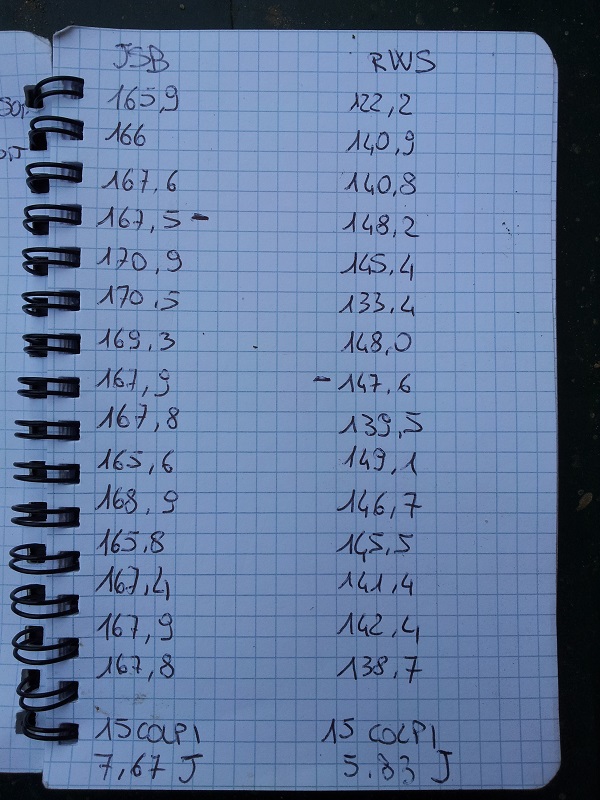 JSB RWS
165,9 122,2
166 140,9
167,6 140,8
167,5 - 148,2
170,9 145,4
170,5 133,4
169,3 148,0
167,9 - 147,6
167,8 139,5
165,6 149,1
168,9 146,7
165,8 145,5
167,4 141,4
167,9 142,4
167,8 138,7
15 COLPI 15 COLPI
7,67 J 5.83 J